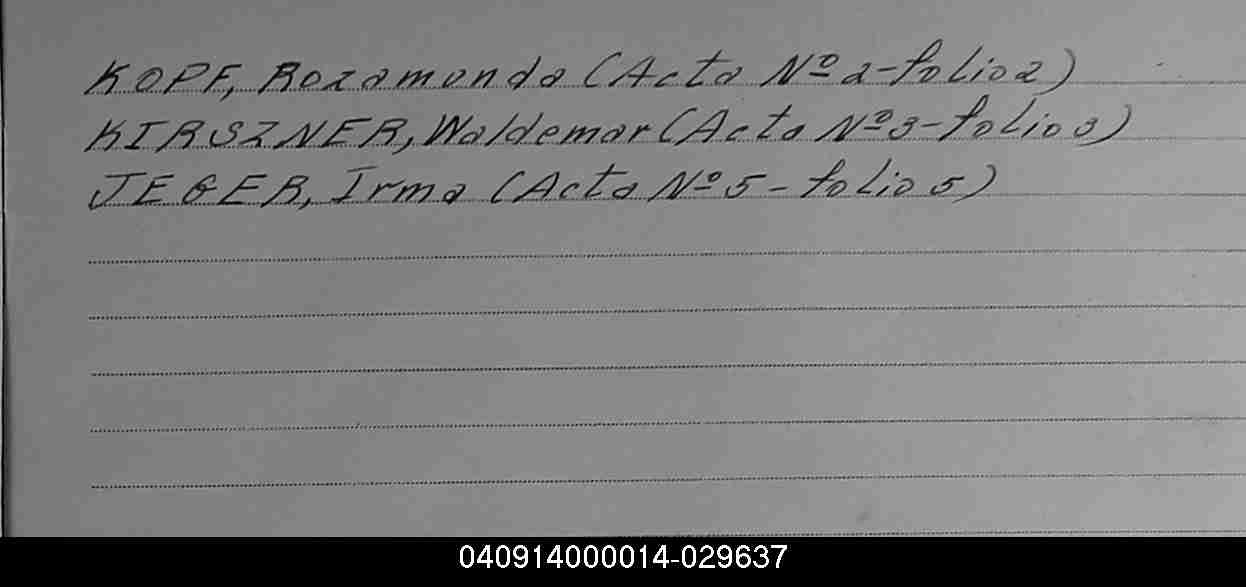 KOPF, Rozamunda (Acta Nº 2-folio 2)
KIRSZNER, Waldemar (Acta Nº 3-folio 3)
JEGER, Irma (Acta Nº 5-folio 5)
040914000014-029637